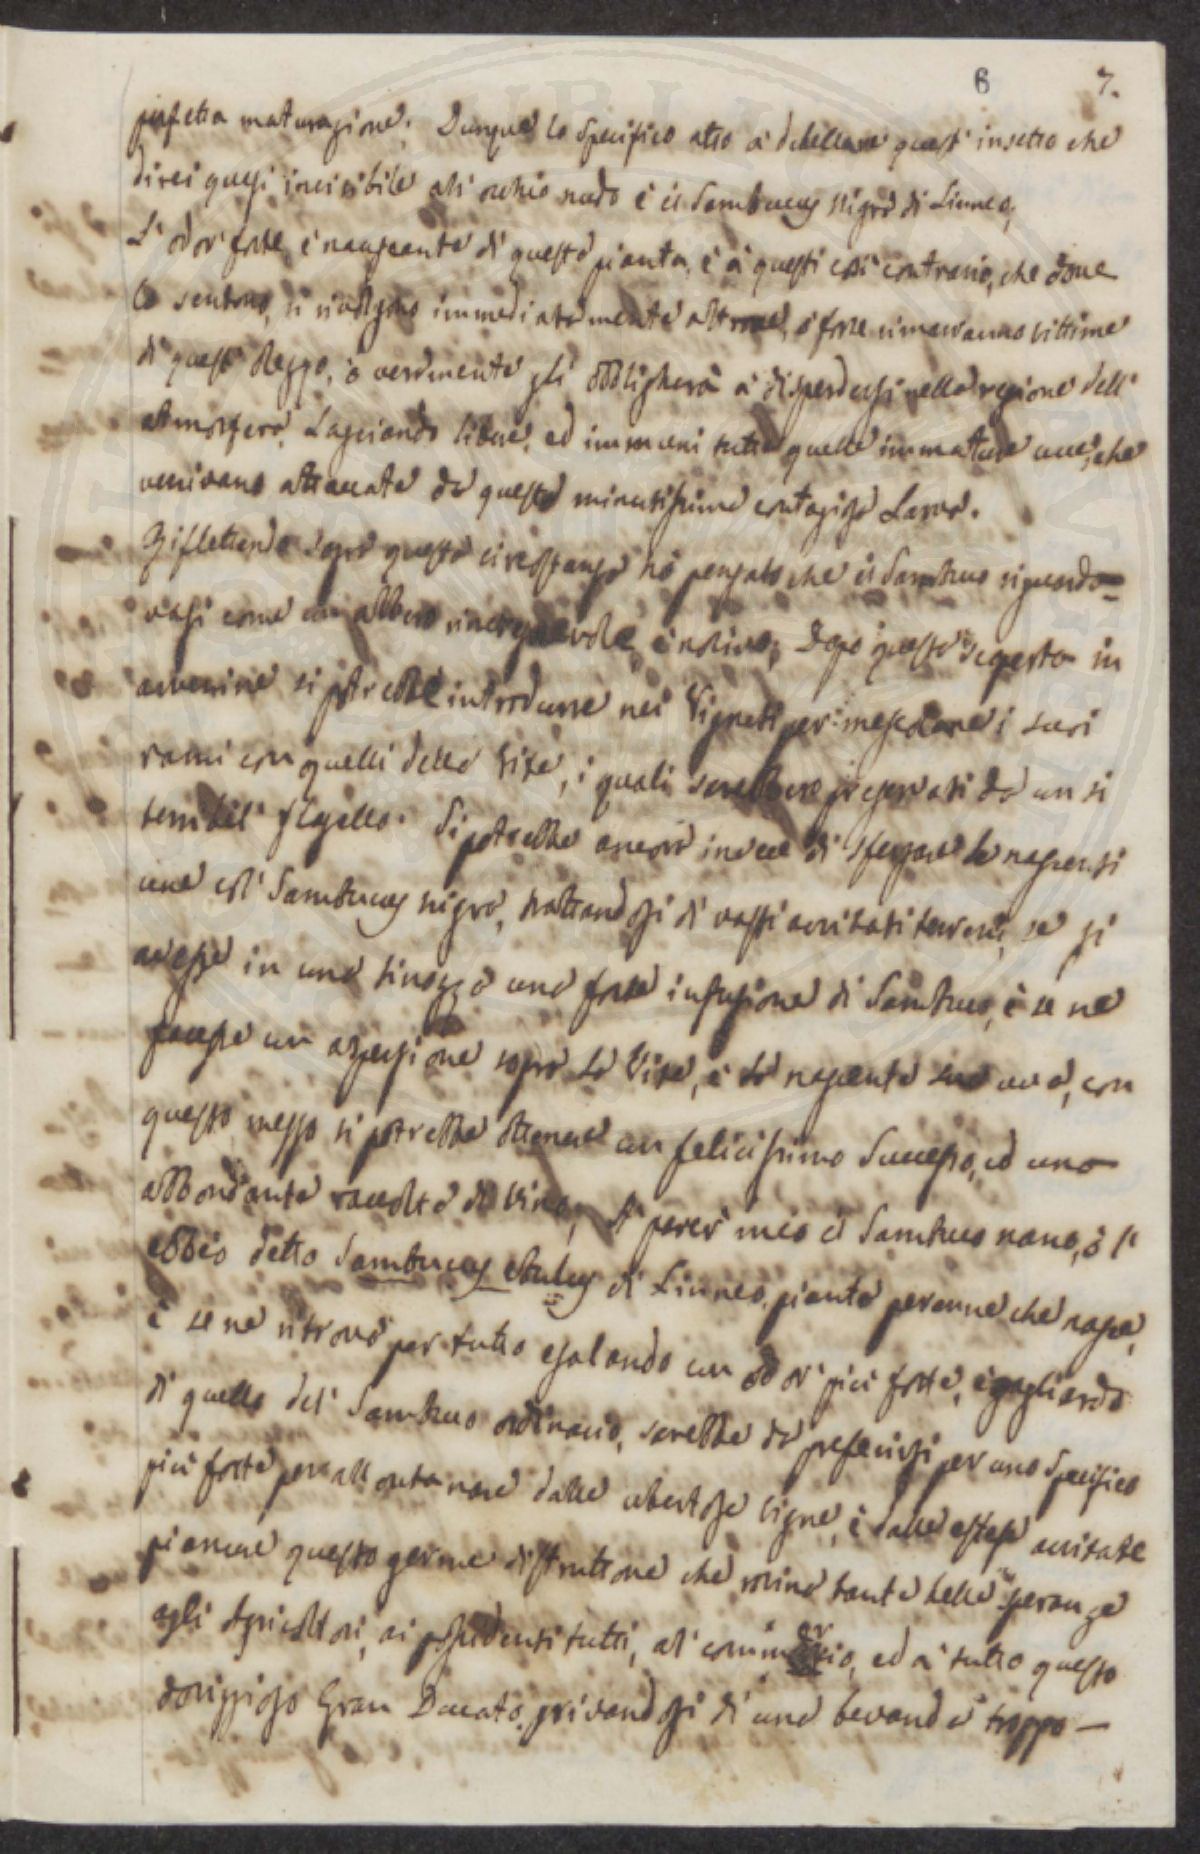 6 7.
perfetta maturazione. Dunque lo Specifico atto à debellare quest' insetto che
direi quasi invisibile all' occhio nudo è il Sambucus Nigra di Linneo,
L' odor forte, è nauseante di questa pianta, è à questi così contrario, che dove
lo sentono, si rivolgono immediatamente altrove, ò forse rimarranno vittime
di questo lezzo, ò veramente gli obbligherà à disperdersi nella regione dell'
atmosfera, Lasciando libere, ed immuni tutte quelle immature uve, che
venivano attaccate da questa minutissima contagiosa Larva.
Riflettendo sopra questa circostanza hò pensato che il Sambuco riguarda=
vasi come un albero è nocivo; Dopo questa scoperta in
avvenire si potrebbe introdurre nei Vigneti per mescolare i suoi
rami con quelli della Vite, i quali sarebbero preservati da un si
terribil' flagello. Si potrebbe ancora invece di sferzare le nascenti
uve col' Sambucus nigra, trattandosi di vasti avvitati terreni, se si
avesse in una tinozza una forte infusione di Sambuco, è se ne
facesse un aspersione sopra la Vite, è la nascente sua uva, con
questo mezzo si potrebbe ottenere un felicissimo Successo, ed una
abbondante raccolta di Vino; A' parer' mio il Sambuco nano, ò l'
ebbio detto Sambucus ebulus di Linneo, pianta perenne che nasce,
è se ne ritrova per tutto esalando un odor' più forte, è gagliardo
di quello del' Sambuco ordinario, sarebbe da preferirsi per uno Specifico
più forte per allontanare dalle ubertose Vigne, è dalle estese avvitate
pianure questo germe distruttore che rovina tante belle speranze
agli Agricoltori, ai possidenti tutti, al' commercio, ed à tutto questo
Gran Ducato, privandosi di una bevanda troppo —